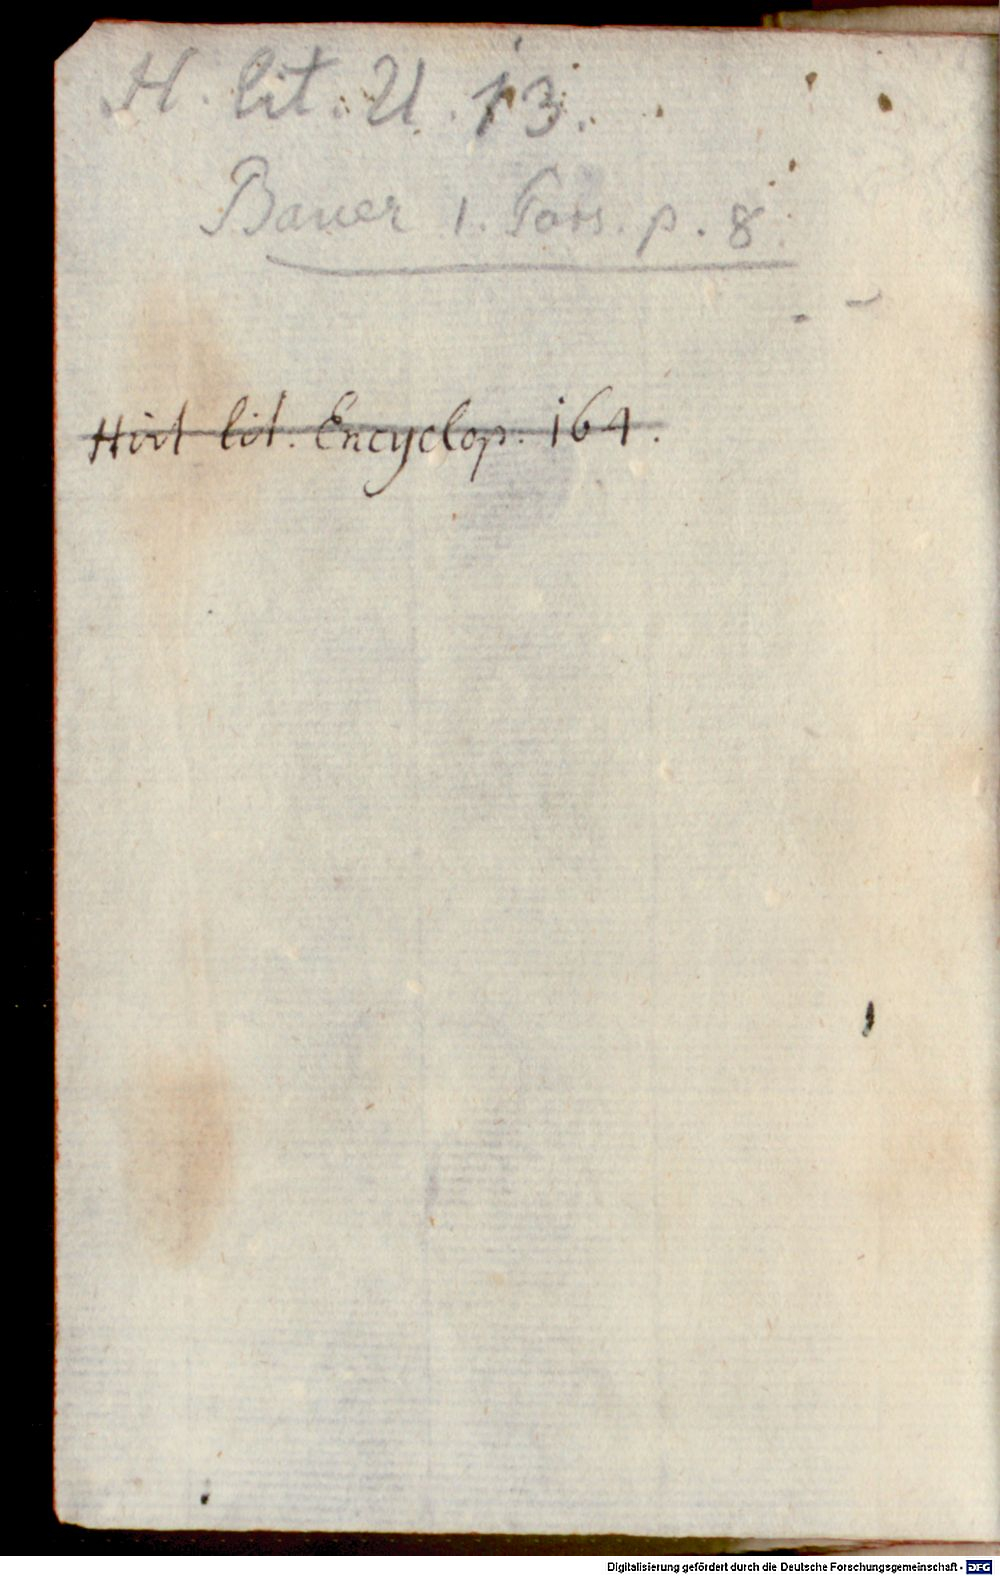 H. lit. U. 13.
Bauer 1. p. 8.
Hist lit. Encyclop. 164.
Digitalisierung gefördert durch die Deutsche Forschungsgemeinschaft - DFG